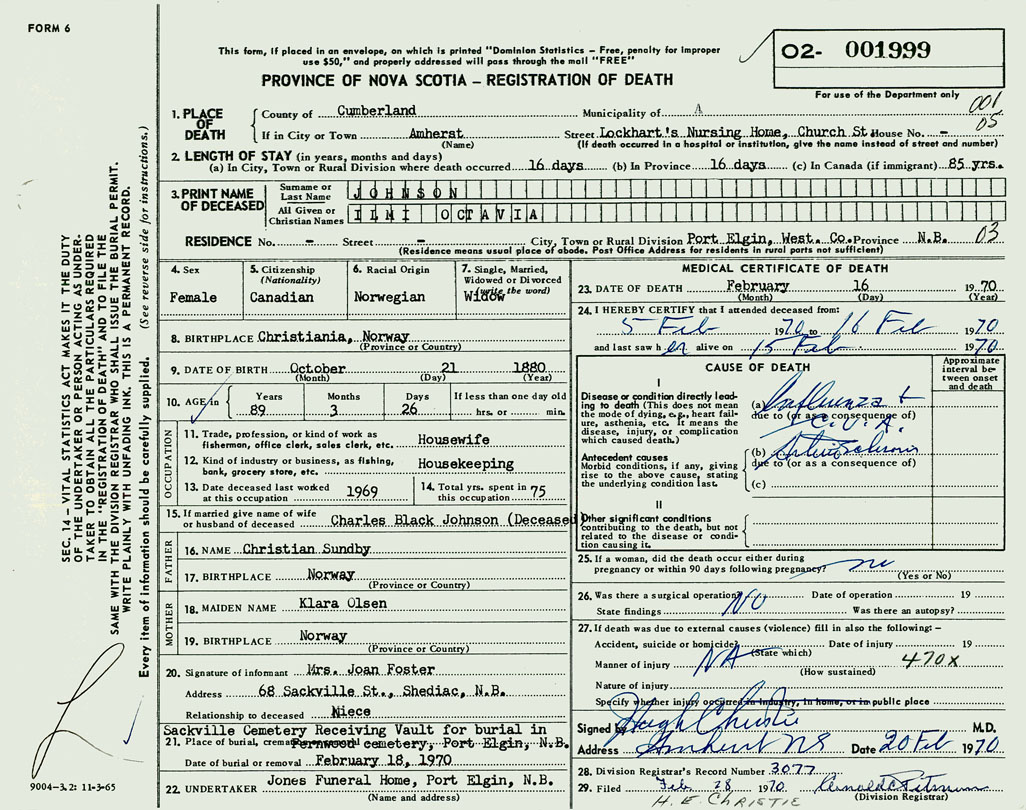 FORM 6
This form, if placed in an envelope, on which is printed "Dominion Statistics – Free, penalty for improper
use $50," and properly addressed will pass through the mail "FREE"
PROVINCE OF NOVA SCOTIA – REGISTRATION OF DEATH
O2- 001999
For use of the Department only
001
05
1. PLACE OF DEATH
County of Cumberland Municipality of A
If in City or Town Amherst Street Lockhart's Nursing Home, Church St. House No. -
(Name) (If death occurred in a hospital or institution, give the name instead of street and number)
2. LENGTH OF STAY (in years, months and days)
(a) In City, Town or Rural Division where death occurred 16 days (b) In Province 16 days (c) In Canada (if immigrant) 85 yrs.
3. PRINT NAME OF DECEASED
Surname or Last Name JOHNSON
All Given or Christian Names ILMI OCTAVIA
RESIDENCE No. - Street - City, Town or Rural Division Port Elgin, West. Co. Province N.B. 03
(Residence means usual place of abode. Post Office Address for residents in rural parts not sufficient)
4. Sex
Female
5. Citizenship
(Nationality)
Canadian
6. Racial Origin
Norwegian
7. Single, Married,
Widowed or Divorced
(write the word)
Widow
8. BIRTHPLACE Christiania, Norway
(Province or Country)
9. DATE OF BIRTH October 21 1880
(Month) (Day) (Year)
10. AGE in Years Months Days If less than one day old
89 3 26 hrs. or min.
OCCUPATION
11. Trade, profession, or kind of work as
fisherman, office clerk, sales clerk, etc. Housewife
12. Kind of industry or business, as fishing,
bank, grocery store, etc. Housekeeping
13. Date deceased last worked
at this occupation 1969
14. Total yrs. spent in
this occupation 75
15. If married give name of wife
or husband of deceased Charles Black Johnson (Deceased)
FATHER
16. NAME Christian Sundby
17. BIRTHPLACE Norway
(Province or Country)
MOTHER
18. MAIDEN NAME Klara Olsen
19. BIRTHPLACE Norway
(Province or Country)
20. Signature of informant Mrs. Joan Foster
Address 68 Sackville St., Shediac, N.B.
Relationship to deceased Niece
Sackville Cemetery Receiving Vault for burial in
21. Place of burial, Fernwood cemetery, Port Elgin, N.B.
Date of burial or removal February 18, 1970
22. UNDERTAKER Jones Funeral Home, Port Elgin, N.B.
(Name and address)
MEDICAL CERTIFICATE OF DEATH
23. DATE OF DEATH February 16 19 70
(Month) (Day) (Year)
24. I HEREBY CERTIFY that I attended deceased from:
5 Feb 1970 to 16 Feb 1970
and last saw her alive on 15 Feb 1970
CAUSE OF DEATH
Approximate
interval be-
tween onset
and death
I
Disease or condition directly lead-
ing to death (This does not mean
the mode of dying, e.g., heart fail-
ure, asthenia, etc. It means the
disease, injury, or complication
which caused death.)
(a) Influenza +
due to (or as a consequence of)
C.V.A.
Antecedent causes
Morbid conditions, if any, giving
rise to the above cause, stating
the underlying condition last.
(b) Arteriosclerosis
due to (or as a consequence of)
(c)
II
Other significant conditions
contributing to the death, but not
related to the disease or condi-
tion causing it.
25. If a woman, did the death occur either during
pregnancy or within 90 days following pregnancy? no
(Yes or No)
26. Was there a surgical operation? NO Date of operation 19
State findings Was there an autopsy?
27. If death was due to external causes (violence) fill in also the following: –
Accident, suicide or homicide? Date of injury 19
(State which)
Manner of injury NA 470X
(How sustained)
Nature of injury
Specify whether injury occurred in industry, in home, or in public place
Signed by Hugh Christie M.D.
Address Amherst NS Date 20 Feb 1970
28. Division Registrar's Record Number 3077
29. Filed Feb 28 1970
(Division Registrar)
H. E. CHRISTIE
SEC. 14 – VITAL STATISTICS ACT MAKES IT THE DUTY
OF THE UNDERTAKER OR PERSON ACTING AS UNDER-
TAKER TO OBTAIN ALL THE PARTICULARS REQUIRED
IN THE "REGISTRATION OF DEATH" AND TO FILE THE
SAME WITH THE DIVISION REGISTRAR WHO SHALL ISSUE THE BURIAL PERMIT.
WRITE PLAINLY WITH UNFADING INK. THIS IS A PERMANENT RECORD.
Every item of information should be carefully supplied. (See reverse side for instructions.)
9004-3.2: 11-3-65